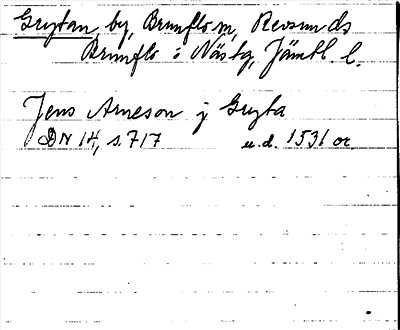 Grytan, by, Brunflo sn, Revsunds
Brunflo o Näs tg, Jämtl l.
Jens Arneson j Gryta
DN 14, s. 717 u.d. 1531 or.